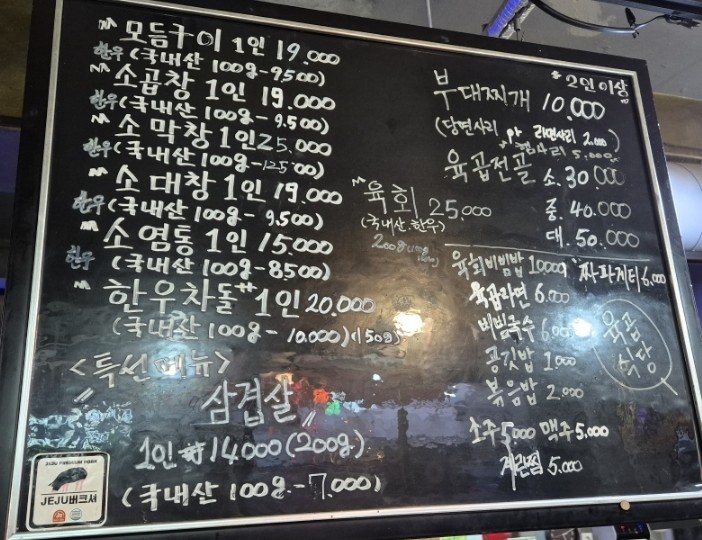 모듬구이 1인 19.000
한우 (국내산 100g-9500)
소곱창 1인 19.000
한우 (국내산 100g-9.500)
소막창 1인 25.000
한우 (국내산 100g-12500)
소대창 1인 19.000
한우 (국내산 100g-9.500)
소염통 1인 15.000
한우 (국내산 100g-8500)
한우차돌 1인 20.000
(국내산 100g-10.000)(150g)
<특선메뉴>
"삼겹살"
1인 ₩14000(200g)
(국내산 100g-7.000)
육회 25.000
(국내산.한우)
200g
*2인 이상
부대찌개 10.000
(당면사리 라면사리 2.000)
5.000
육곱전골 소.30.000
중.40.000
대.50.000
육회비빔밥 10000
짜파게티 6.000
육곱라면 6.000
비빔국수 6.000
공깃밥 1.000
볶음밥 2.000
육곱식당
소주 5000 맥주 5.000
계란찜 5.000
JEJU버크셔